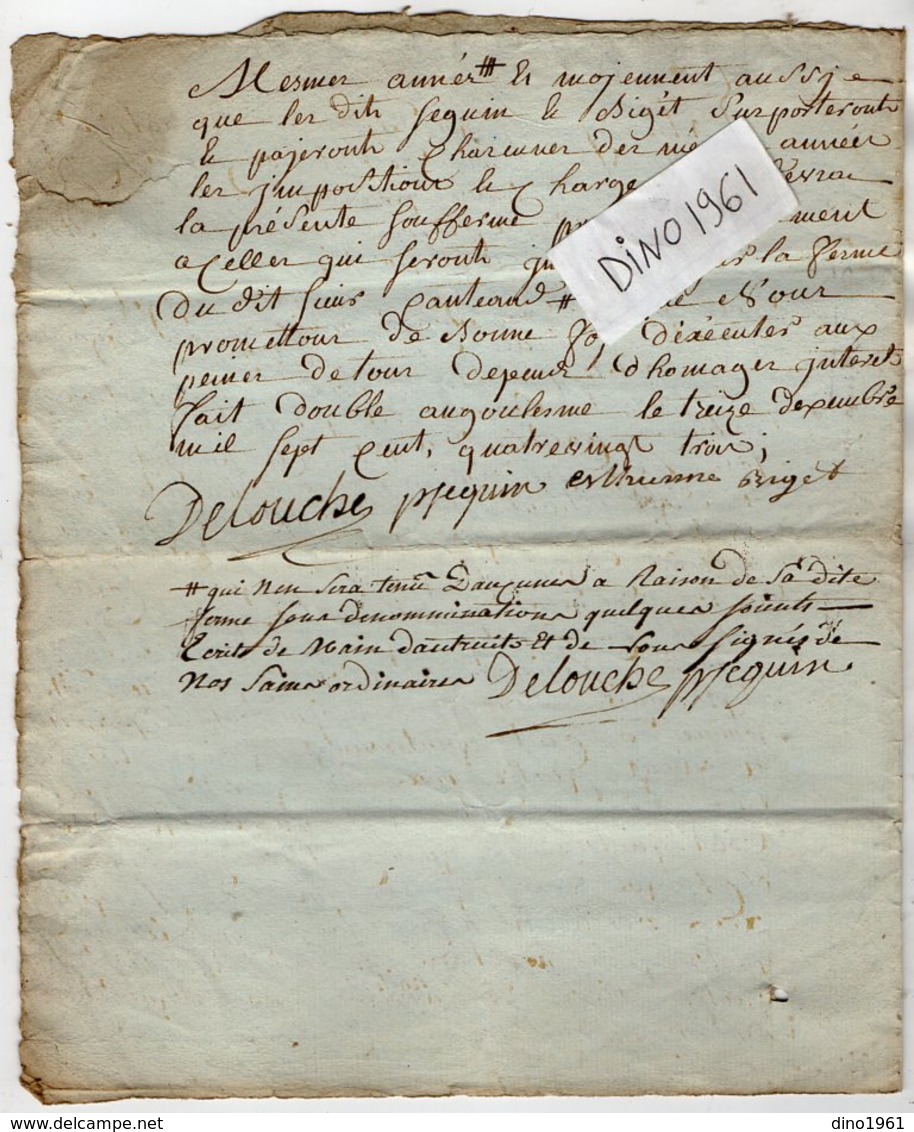 Mesmes années # Et mojennent aussj
que les dits seguin & Biget surporteronts
& pajeronts chacunes des années
les jmpositions & charges
la présente soufferme
a celles qui seronts la ferme
du dit sieur # Nous
promettons de Bonne foj d'éxécuter aux
peines de tous depens d'homages interets
fait double angoulesme le treize decembre
mil sept cent, quatrevingt trois;
Delouche pseguin esthienne Biget
# qui Nen sera tenu Daucunes a Raison de Sa dite
ferme sous denomminations quelques soients
Ecrits de Main dautruits et de Nous signés de
Nos Sains ordinaires Delouche pseguin
DINO1961
dino1961